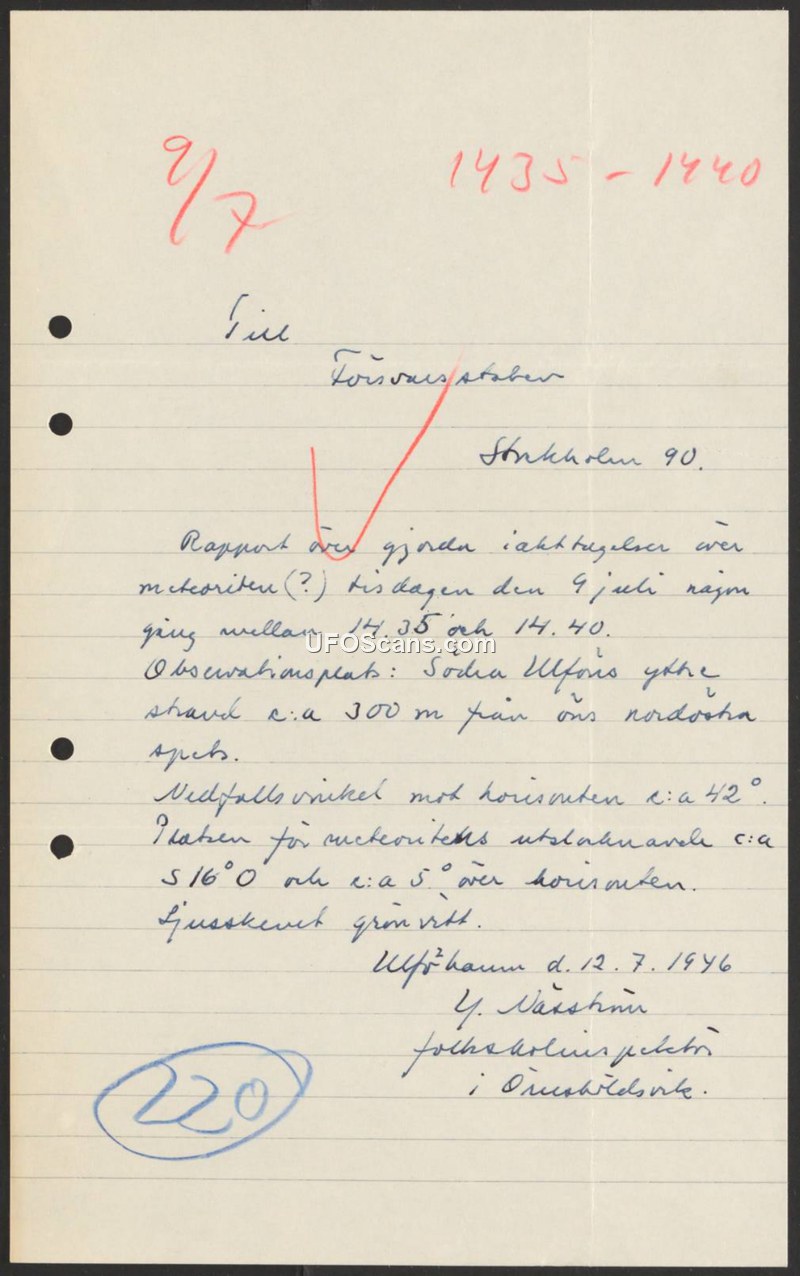 9/7
1435 - 1440
Till
Försvarsstaben
Stockholm 90.
Rapport över gjorda iakttagelser över
meteoriten (?) tisdagen den 9 juli någon
gång mellan 14.35 och 14.40.
UFOScans.com
Observationsplats: Södra Ulföns yttre
strand c:a 300 m från öns nordöstra
spets.
Nedfallsvinkel mot horisonten c:a 42°.
Platsen för meteoritens utslocknande c:a
S 16° O och c:a 5° över horisonten.
Ljusskenet grönvitt.
Ulföhamn d. 12.7.1946
Y. Näsström
folkskolinspektör
i Örnsköldsvik.
220